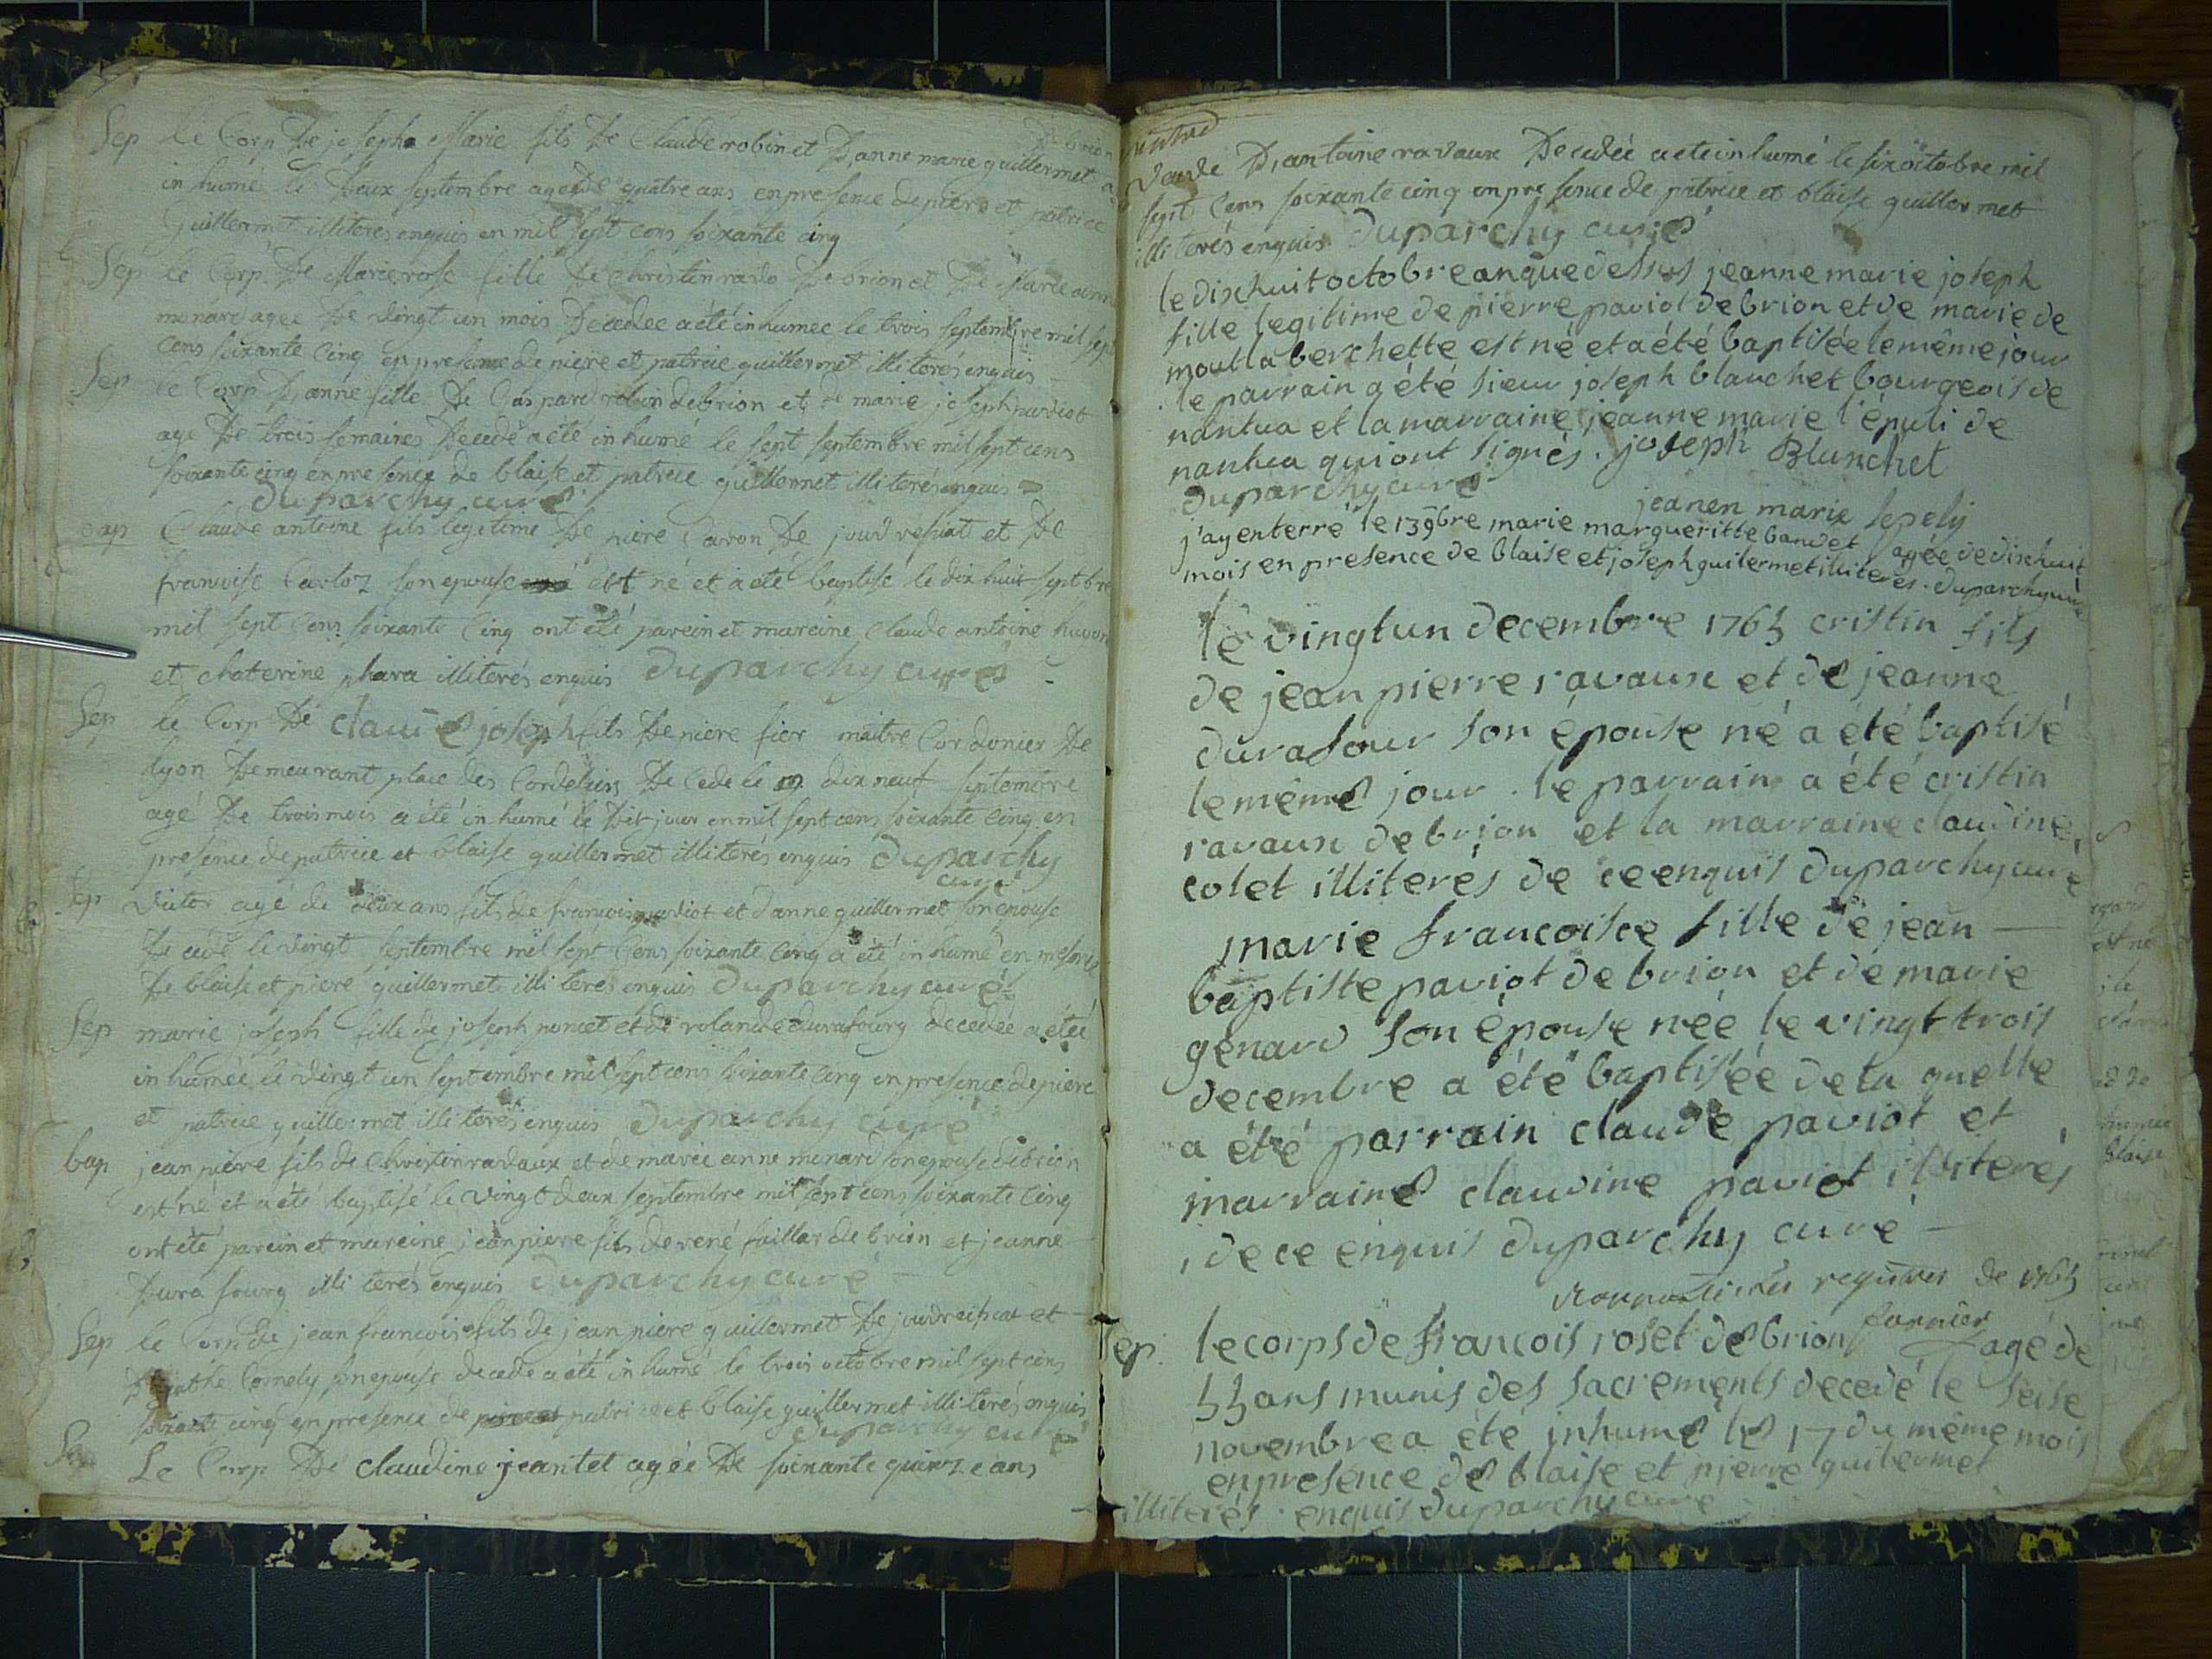 de brion
Sep le Corp De joseph Marie fils De Claude robin et D'anne marie guillermet a
inhumé le Deux septembre agé De quatre ans en presence de piere et patrice
Guillermet illiterés enquis en mil sept cens soixante cinq
Sep le Corp De Marie rose fille De Christin ravo De brion et De Marie anne
monard agée De vingt un mois Decedée a été inhumée le trois septembre mil sept
cens soixante Cinq en presence de piere et patrice guillermet illiterés enquis
Sep le Corp D'anne fille De Gaspard robin de brion et de marie joseph paviot
agé De trois semaines Decedé a été inhumé le sept septembre mil sept cens
soixante cinq en presence de blaise et patrice guillermet illiterés enquis
duparchy curé
bap Claude antoine fils legitime De piere Caron De
francoise Carloz son epouse est né et a été baptisé le dix huit septbre
mil sept Cens soixante Cinq ont été parein et mareine Claude antoine
et chaterine phara illiterés enquis duparchy curé
Sep le Corp De claude joseph fils De piere fier maitre Cordonier De
lyon Demeurant place des Cordeliers Decede le dix neuf septembre
agé De trois mois a été inhumé le Dit jour en mil sept cens soixante Cinq en
presence de patrice et blaise guillermet illiterés enquis duparchy
curé
Sep victor agé de deux ans fils de francois paviot et d'anne guillermet son epouse
Decedé le vingt septembre mil sept Cens soixante Cinq a été inhumé en presence
De blaise et piere guillermet illiterés enquis duparchy curé
Sep marie joseph fille de joseph poncet et de rolande durafourg decedée a été
inhumée le vingt un septembre mil sept cens soixante Cinq en presence de piere
et patrice guillermet illiterés enquis duparchy curé
bap jean piere fils de Christin ravaux et de marie anne monard son epouse de brion
est né et a été baptisé le vingt deux septembre mil sept cens soixante Cinq
ont été parein et mareine jean piere fils de rené faillar de brion et jeanne
Durafourg illiterés enquis duparchy curé
Sep le Corp de jean francois fils de jean piere guillermet De et
D'agathe Cornely son epouse decedé a été inhumé le trois octobre mil sept cens
soixante cinq en presence de patrice et blaise guillermet illiterés enquis
duparchy curé
Sep Le Corp De claudine jeantet agée De soixante quinze ans
veuve D'antoine ravaux Decedée a ete inhumé le six octobre mil
sept Cens soixante cinq en presence de patrice et blaise guillermet
illiterés enquis duparchy curé
le dixhuit octobre an que dessus jeanne marie joseph
fille legitime de pierre paviot de brion et de marie de
mout la berchette est né et a été baptisée le même jour
le parrain a été sieur joseph blanchet bourgeois de
nantua et la marraine jeanne marie l'épuli de
nantua qui ont signés. joseph Blanchet
duparchy curé jeanen marie lepely
j'ay enterré le 13 9bre marie margueritte baudet agée de dixhuit
mois en presence de blaise et joseph guilermet illiterés. duparchy curé
le vingt un decembre 1765 cristin fils
de jean pierre ravaux et de jeanne
durafour son épouse né a été baptisé
le même jour. le parrain a été cristin
ravaux de brion et la marraine claudine
colet illiterés de ce enquis duparchy curé
marie francoise fille de jean
baptiste paviot de brion et de marie
genard son épouse née le vingt trois
decembre a été baptisée de la quelle
a été parrain claude paviot et
marraine claudine paviot illiterés
de ce enquis duparchy curé
registres de 1765
Sep. le corps de francois roset de brion agé de
55 ans munis des sacrements decedé le seise
novembre a été inhumé le 17 du même mois
en presence de blaise et pierre guilermet
illiterés enquis duparchy curé